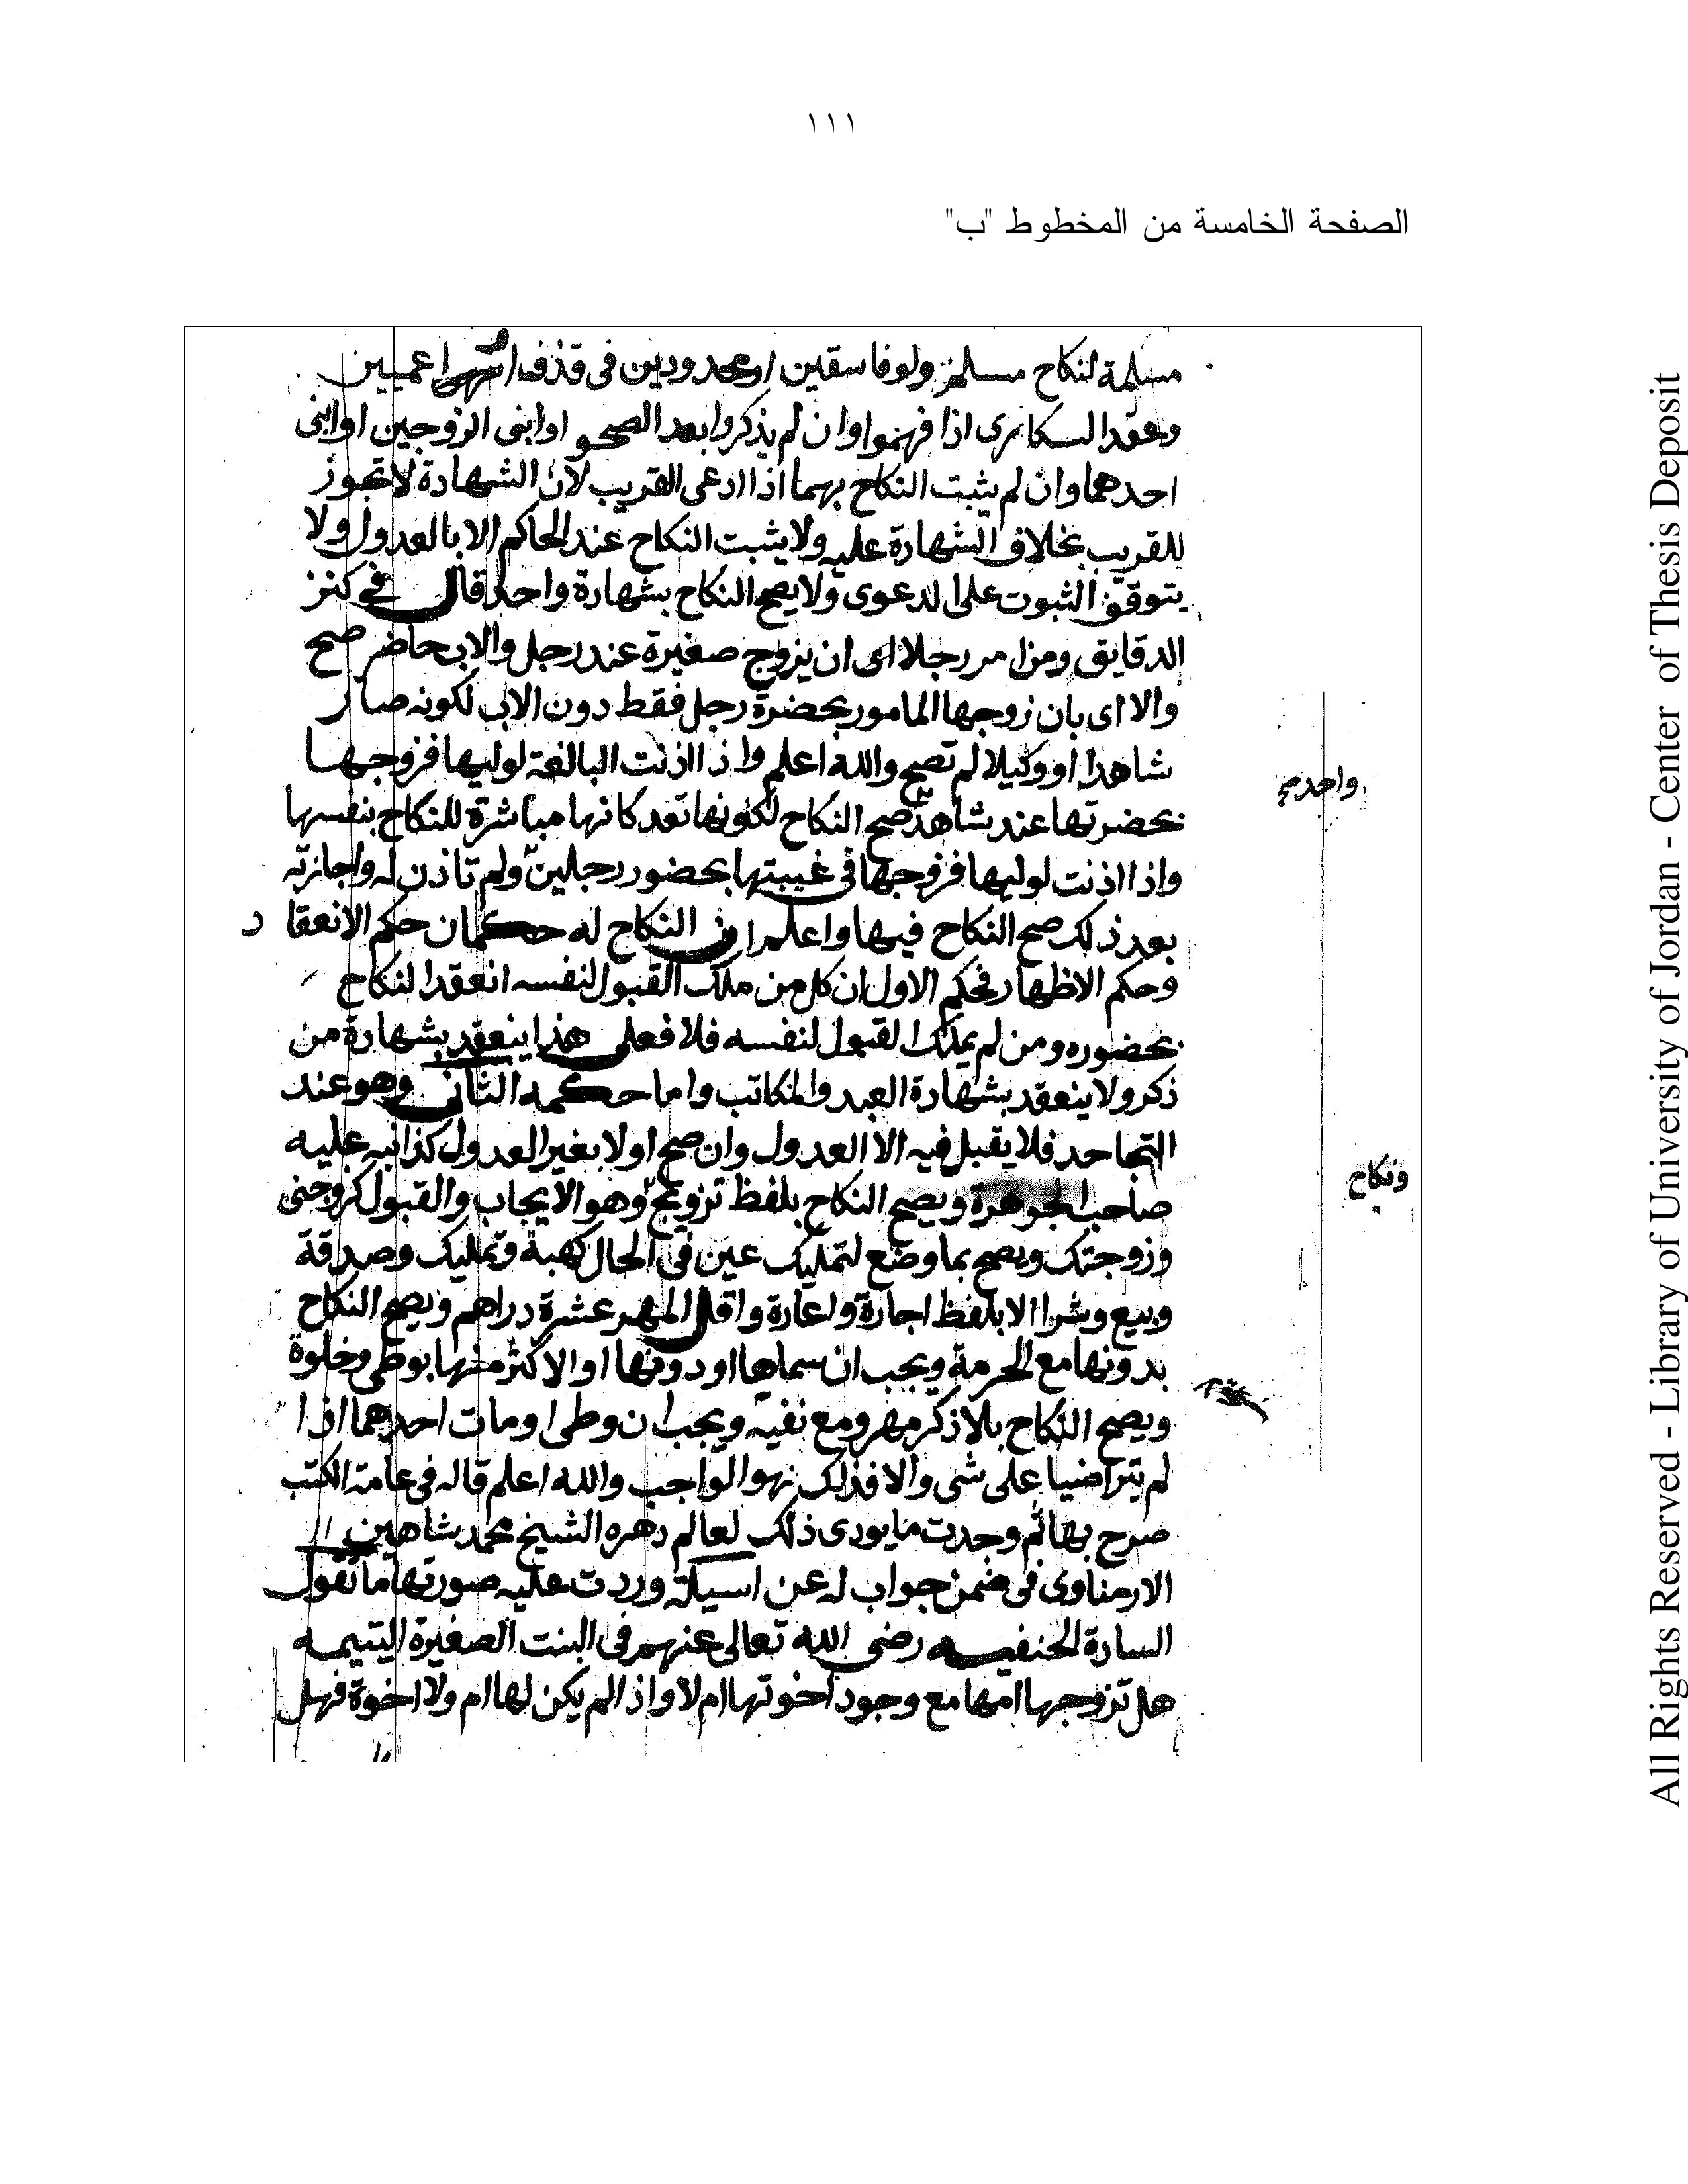 ١١١
الصفحة الخامسة من المخطوط "ب"
مسلمة لنكاح مسلم ولو فاسقين او محدودين في قذف اعميين
وعقد السكارى اذا فهموا وان لم يذكروا بعد الصحو او ابنى الزوجين او ابنى
احدهما وان لم يثبت النكاح بهما اذا ادعى القريب لان الشهادة لا تجوز
للقريب بخلاف الشهادة عليه ولا يثبت النكاح عند الحاكم الا بالعدول ولا
يتوقف الثبوت على الدعوى ولا يصح النكاح بشهادة واحد قال في كنز
الدقايق ومن امر رجلا اى ان يزوج صغيرة عند رجل والاب حاضر صح
والا اى بان زوجها المامور بحضرة رجل فقط دون الاب لكونه صار
شاهدا او وكيلا لم تصح والله اعلم واذا اذنت البالغة لوليها فزوجها
بحضرتها عند شاهد صح النكاح لكونها تعد كانها مباشرة للنكاح بنفسها
واحد صح
واذا اذنت لوليها فزوجها فى غيبتها بحضور رجلين ولم تاذن له واجازته
بعد ذلك صح النكاح فيها واعلم ان النكاح له حكمان حكم الانعقاد
وحكم الاظهار فحكم الاول ان كل من ملك القبول لنفسه انعقد النكاح
بحضوره ومن لم يملك القبول لنفسه فلا فعلى هذا ينعقد بشهادة من
ذكر ولا ينعقد بشهادة العبد والمكاتب واما حكمه الثانى وهو عند
التجاحد فلا يقبل فيه الا العدول وان صح اولا بغير العدول كذا نبه عليه
صاحب الجوهرة ويصح النكاح بلفظ تزويج وهو الايجاب والقبول كزوجنى
ونكاح
وزوجتك ويصح بما وضع لتمليك عين فى الحال كهبة وتمليك وصدقة
وبيع وشرا الا بلفظ اجارة واعارة واقل المهر عشرة دراهم ويصح النكاح
بدونها مع الحرمة ويجب ان سماها او دونها او الاكثر منها بوطى وخلوة
ويصح النكاح بلا ذكر مهر ومع نفيه ويجب ان وطى او مات احدهما اذا
لم يتراضيا على شى والا فذلك هو الواجب والله اعلم قاله فى عامة الكتب
صرح بها ثم وجدت ما يودى ذلك لعالم دهره الشيخ محمد شاهين
الارمناوى فى ضمن جواب له عن اسيلة وردت عليه صورتها ما تقول
السادة الحنفيه رضى الله تعالى عنهم فى البنت الصغيرة اليتيمه
هل تزوجها امها مع وجود اخوتها ام لا واذا لم يكن لها ام ولا اخوة فهل
All Rights Reserved - Library of University of Jordan - Center of Thesis Deposit